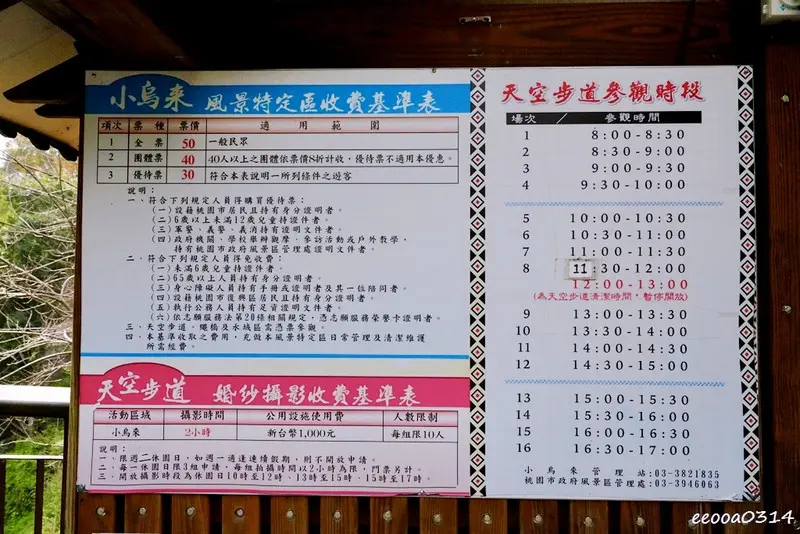 小烏來 風景特定區收費基準表
項次 票種 票價 適用範圍
1 全票 50 一般民眾
2 團體票 40 40人以上之團體依票價8折計收,優待票不適用本優惠。
3 優待票 30 符合本表說明一所列條件之遊客
說明:
一、符合下列規定人員得購買優待票:
(一)設籍桃園市居民且持有身分證明者。
(二)6歲以上未滿12歲兒童持證件者。
(三)軍警、義警、義消持有證明文件者。
(四)政府機關、學校舉辦觀摩、參訪活動或戶外教學,
持有桃園市政府風景區管理處證明文件者。
二、符合下列規定人員得免收費:
(一)未滿6歲兒童持證件者。
(二)65歲以上人員持有身分證明者。
(三)身心障礙人員持有手冊或證明者及其一位陪同者。
(四)設籍桃園市復興區居民且持有身分證明者。
(五)執行公務人員持有足資證明文件者。
(六)依志願服務法第20條相關規定,憑志願服務榮譽卡證明者。
三、天空步道、繩橋及水域區需憑票參觀。
四、本基準收取之費用,充做本風景特定區日常管理及清潔維護
所需經費。
天空步道 婚紗攝影收費基準表
活動區域 攝影時間 公用設施使用費 人數限制
小烏來 2小時 新台幣1,000元 每組限10人
說明:
一、限週二休園日,如週一適逢連續假期,則不開放申請。
二、每一休園日限3組申請,每組拍攝時間以2小時為限,門票另計。
三、開放攝影時段為休園日10時至12時、13時至15時、15時至17時。
天空步道參觀時段
場次 / 參觀時間
1 8:00-8:30
2 8:30-9:00
3 9:00-9:30
4 9:30-10:00
5 10:00-10:30
6 10:30-11:00
7 11:00-11:30
8 11:30-12:00
12:00-13:00
(為天空步道清潔時間,暫停開放)
9 13:00-13:30
10 13:30-14:00
11 14:00-14:30
12 14:30-15:00
13 15:00-15:30
14 15:30-16:00
15 16:00-16:30
16 16:30-17:00
小烏來管理站:03-3821835
桃園市政府風景區管理處:03-3946063
eeooa0314